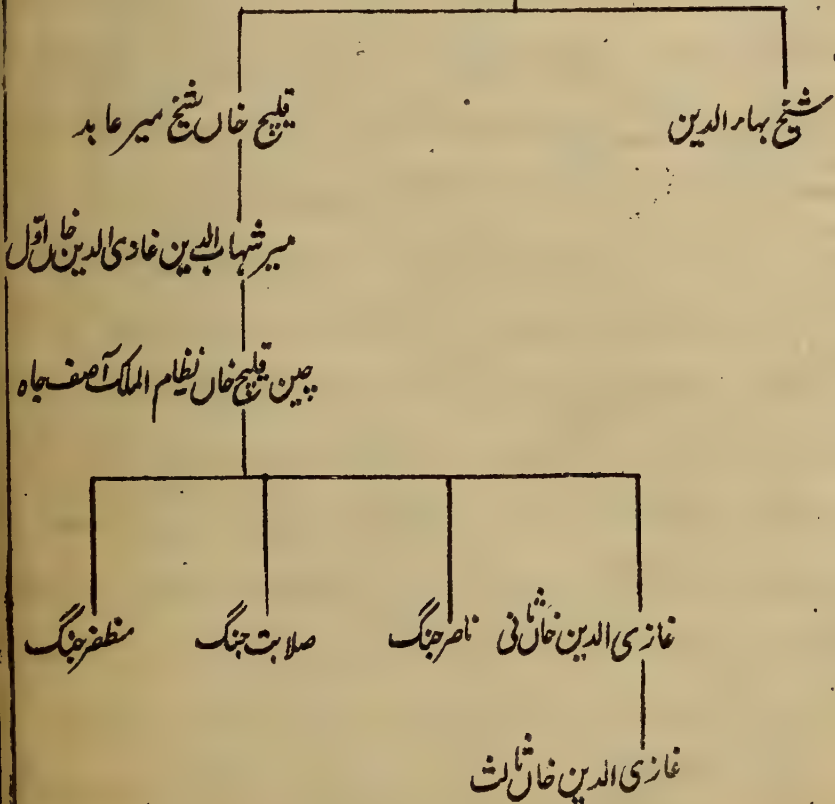 شیخ بهاء الدین
قلیچ خاں شیخ میر عابد
میر شهاب الدین غازی الدین خاں اوّل
چین قلیچ خاں نظام الملک آصف جاه
غازی الدین خاں ثانی
ناصر جنگ
صلابت جنگ
مظفر جنگ
غازی الدین خاں ثالث